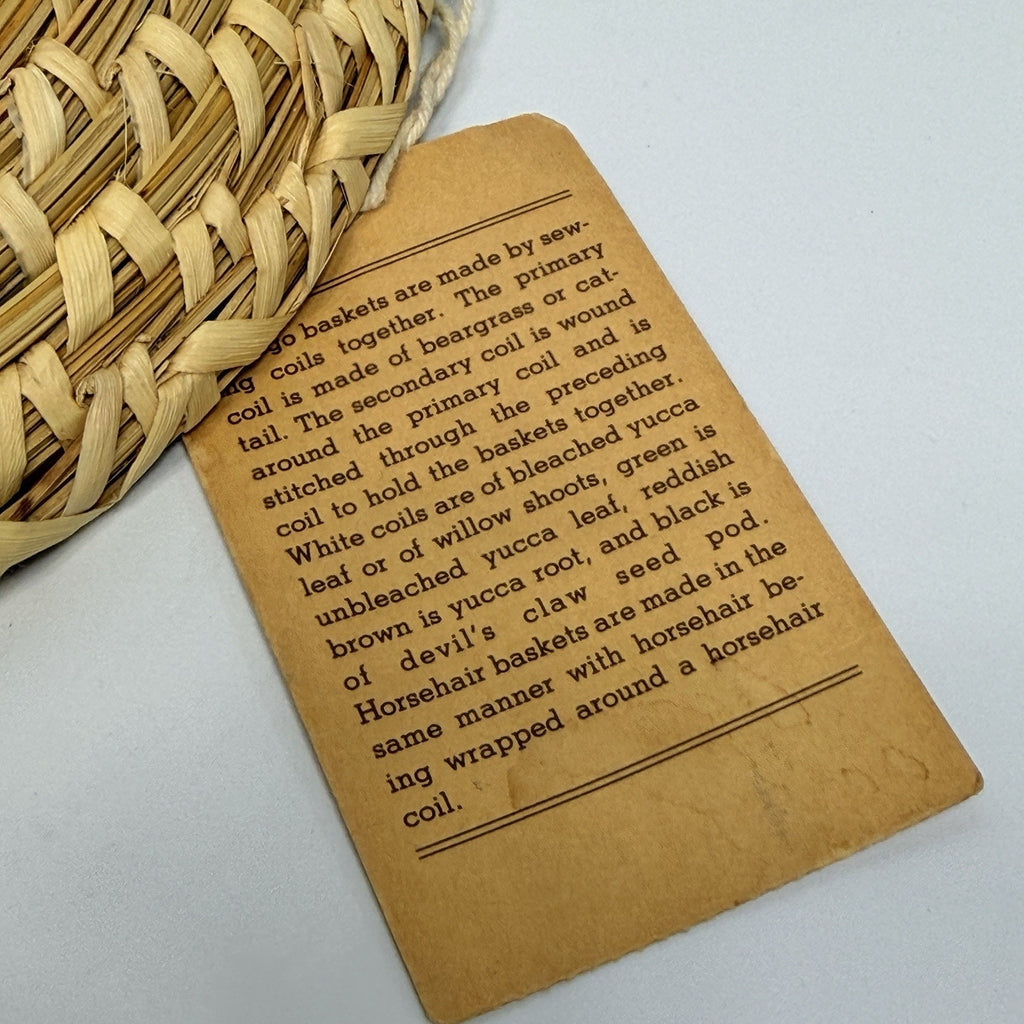 go baskets are made by sew-
ng coils together. The primary
coil is made of beargrass or cat-
tail. The secondary coil is wound
around the primary coil and is
stitched through the preceding
coil to hold the baskets together.
White coils are of bleached yucca
leaf or of willow shoots, green is
unbleached yucca leaf, reddish
brown is yucca root, and black is
of devil's claw seed pod.
Horsehair baskets are made in the
same manner with horsehair be-
ing wrapped around a horsehair
coil.